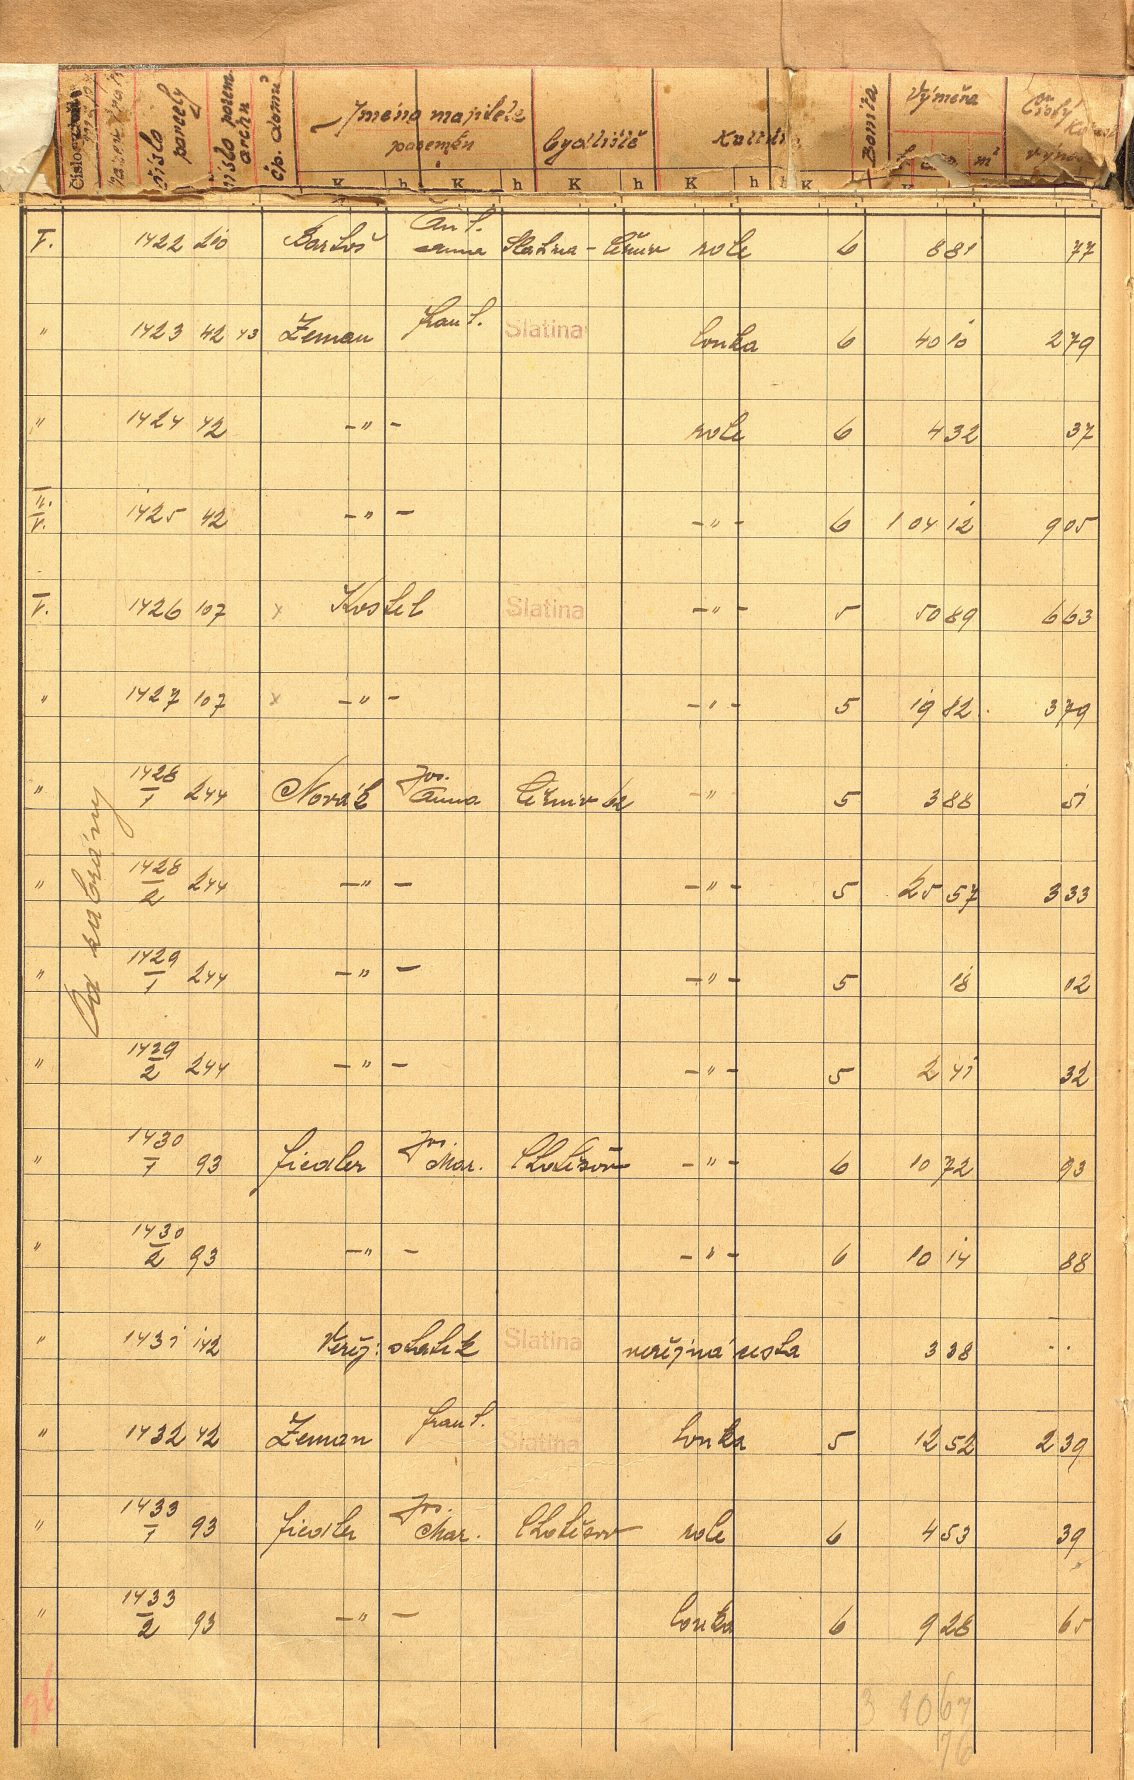 číslo parcely
číslo pozem. archu
čp. domu
Jméno majitele pozemku
Bydliště
Bonita
Výměra
m²
Čistý
K h K h K h K h K
V. 1422 210 Bartoš Ant. Anna Slatina - role 6 8 81 77
" 1423 42 43 Zeman Frant. Slatina louka 6 40 10 2 79
" 1424 42 -"- role 6 4 32 37
V. 1425 42 -"- -"- 6 1 04 12 9 05
V. 1426 107 x Kostel Slatina -"- 5 50 89 6 63
" 1427 107 x -"- -"- 5 19 82 3 79
" 1428/1 244 Novák Jos. Anna -"- 5 3 88 51
" 1428/2 244 -"- -"- 5 25 57 3 33
" 1429/1 244 -"- -"- 5 18 02
" 1429/2 244 -"- -"- 5 2 41 32
" 1430/1 93 Fiedler Jos. Mar. -"- 6 10 72 93
" 1430/2 93 -"- -"- 6 10 14 88
" 1431 142 Veřej: statek Slatina veřejná cesta 3 38 ..
" 1432 42 Zeman Frant. Slatina louka 5 12 52 2 39
" 1433/1 93 Fiedler Jos. Mar. role 6 4 53 39
" 1433/2 93 -"- louka 6 9 28 65
96
3 10 67
76